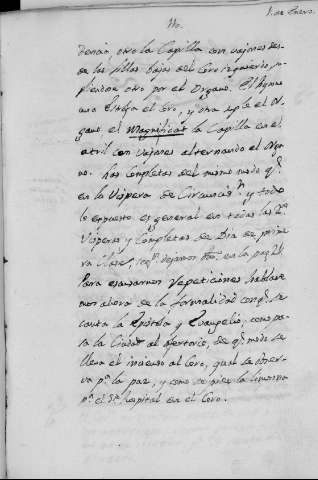 1. de Enero.
110.
denan otro la Capilla con vajones des
de las sillas bajas del Coro izquierdo, su
pliendose otro por el Organo. El Hymno
una Estrofa el Coro, y otra suple el Or
gano. el Magnificat la Capilla en el
atril con vajones alternando el Orga
no. Las Completas del mismo modo qᵉ.
en la Vispera de Circuncisⁿ. y todo
lo expuesto es general en todas las
Visperas y Completas de Dia de prime
ra Clase, dejamos en la pag.
Para escusarnos repeticiones hablare
mos ahora de la formalidad conqᵉ. se
canta la Epistola y Evangelio; como ba
la Ciudad al ofertorio, de qᵉ. modo se
lleva el incienso al Coro, qual se obser
va pᵃ. la paz, y como se pide la limosna
pᵃ. el Sᵗᵒ. Hospital en el Coro.